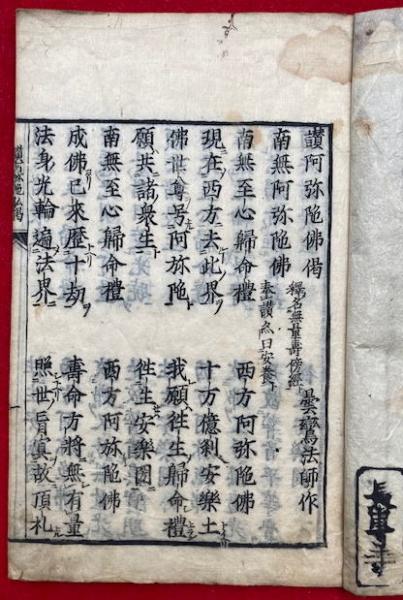 讃阿弥陀佛偈　曇鸞法師作
南無阿弥陀佛　釋名無量壽傍經
奉讃亦曰安養
南無至心歸命禮　西方阿弥陀佛
現在西方去此界　十万億刹安樂土
佛世尊号阿弥陀　我願徃生歸命禮
願共諸衆生　徃生安樂國
南無至心歸命禮　西方阿弥陀佛
成佛已來歷十劫　壽命方將無有量
法身光輪遍法界　照世盲冥故頂礼
一